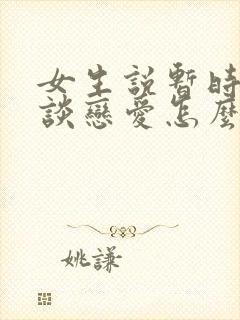 女生說暫時
談戀愛怎麼
姚謙